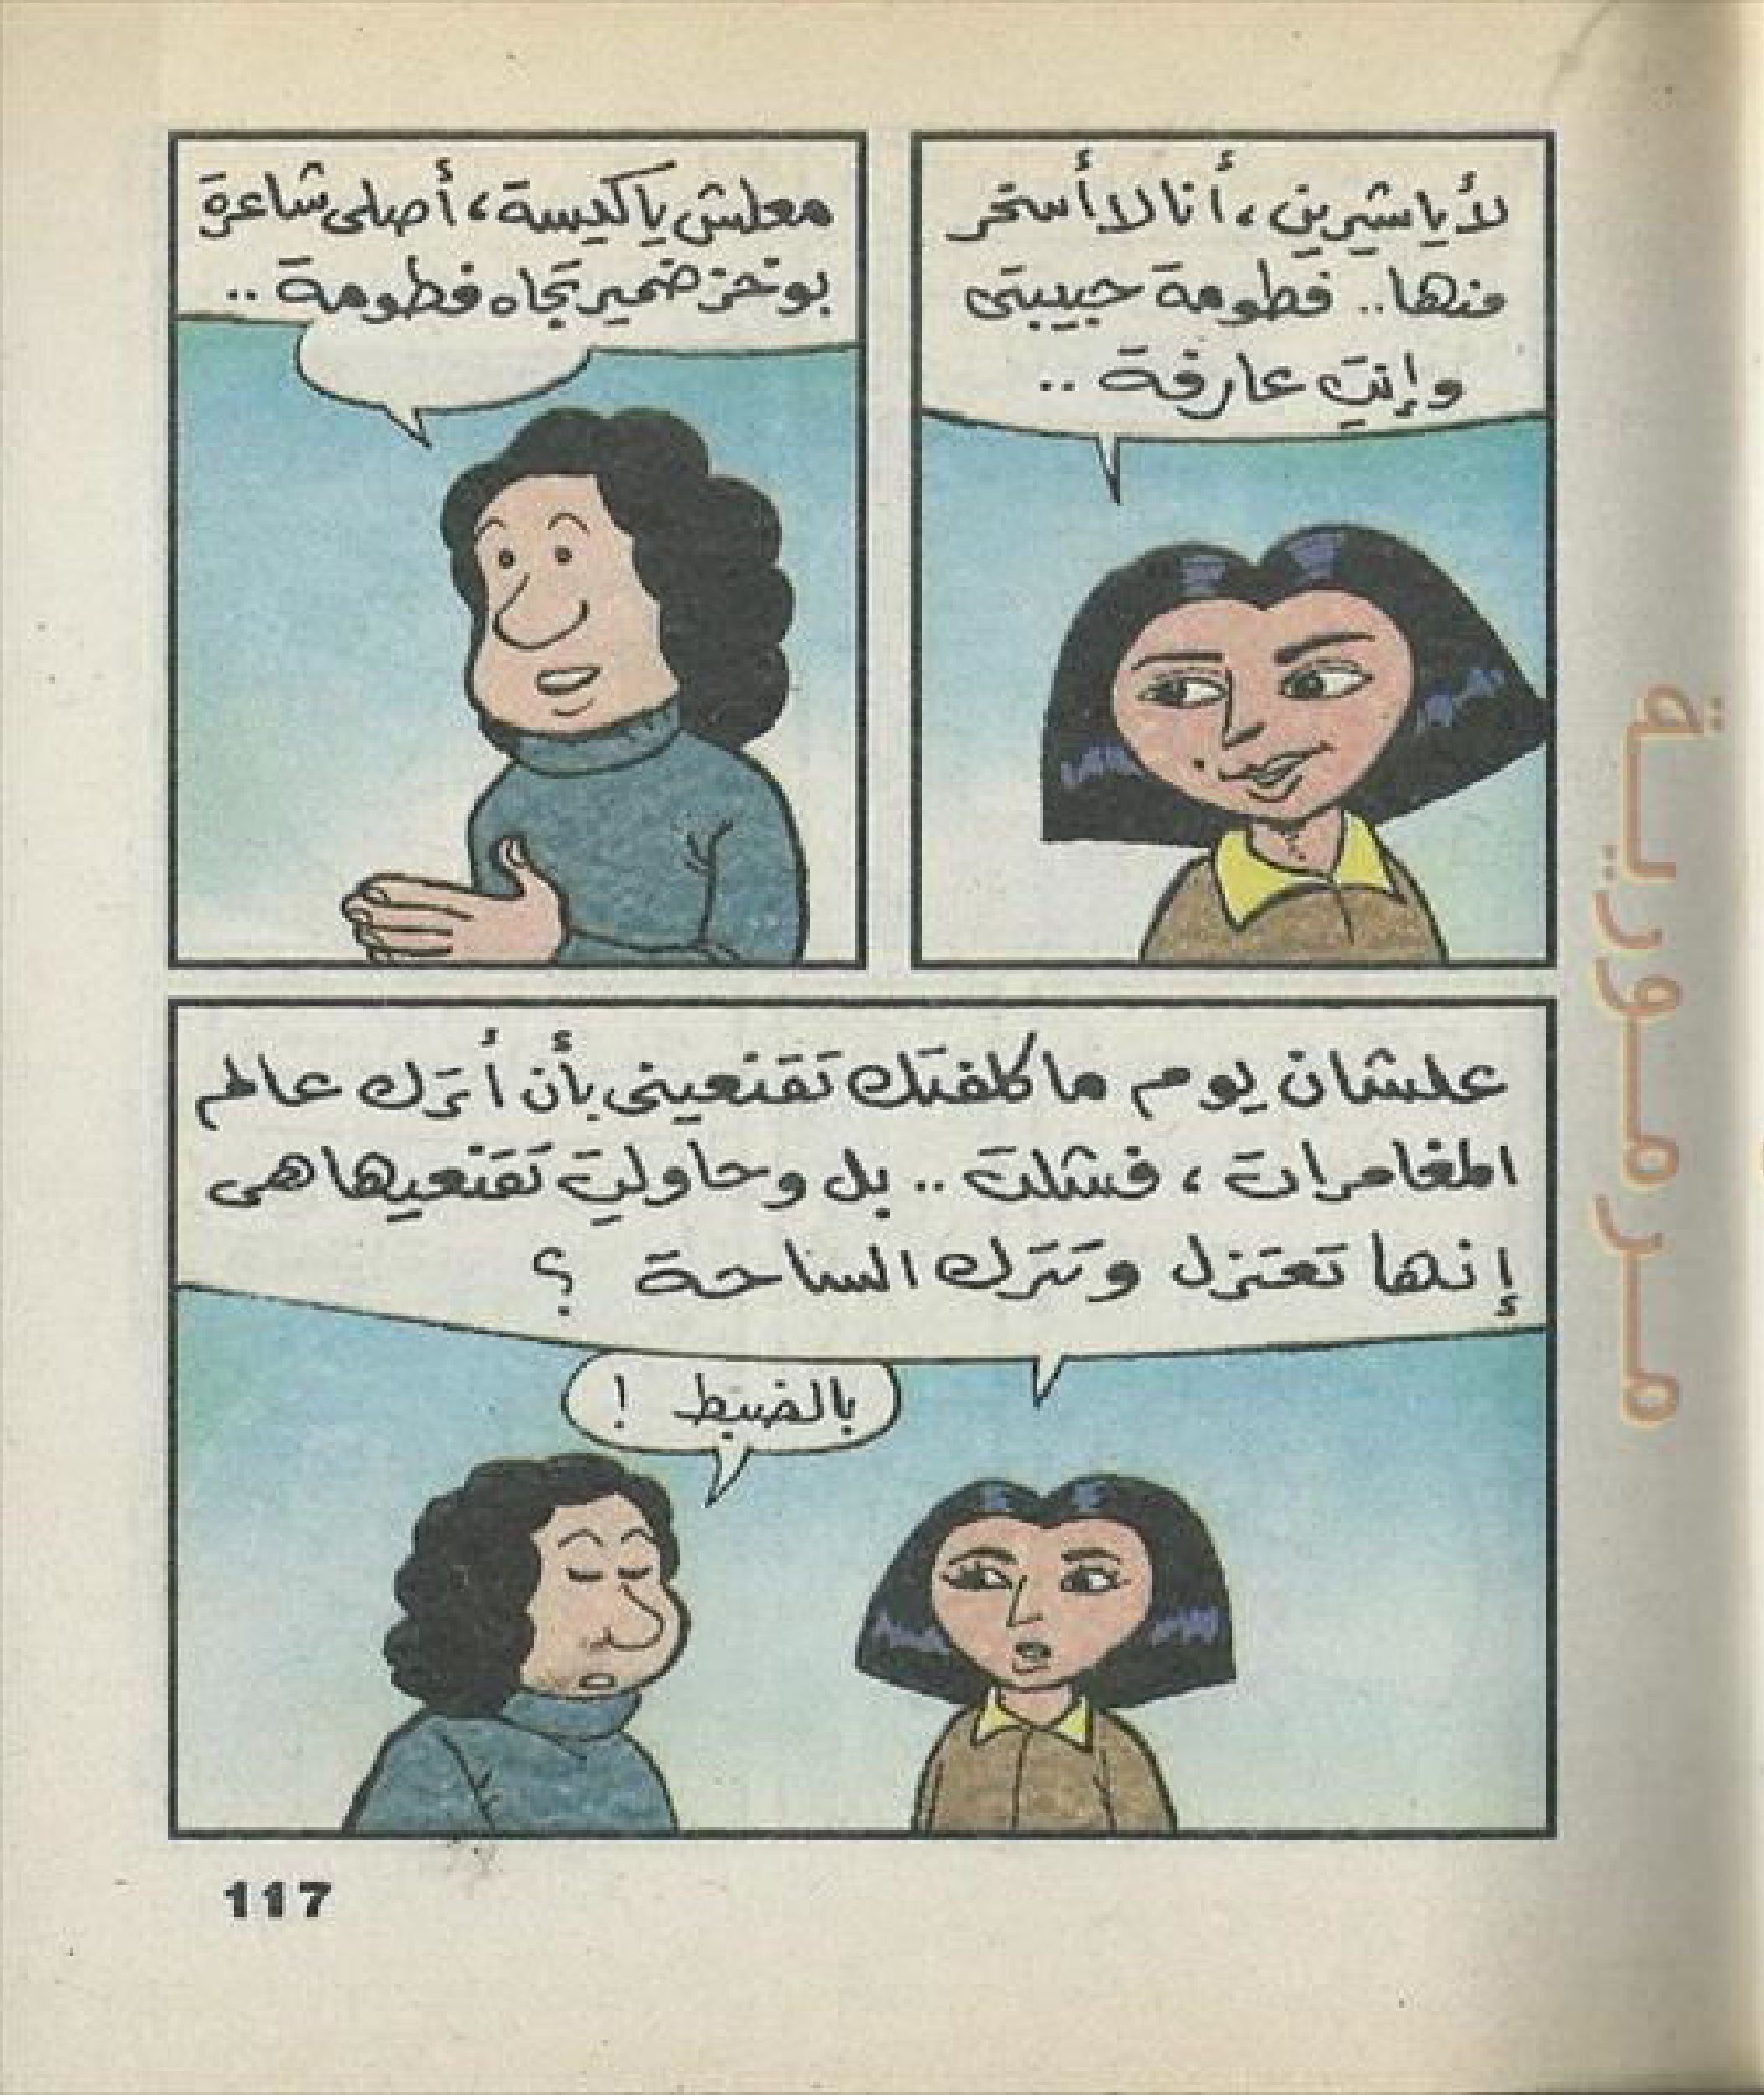 لأ ياشيرين، أنا لا أسخر
منها.. فطومة حبيبتى
وإنتِ عارفة ..
معلش يا كيسة، أصلى شاعرة
بوخز ضمير تجاه فطومة ..
علشان يوم ما كلفتك تقنعينى بأن أترك عالم
المغامرات، فشلت .. بل وحاولتِ تقنعيها هى
إنها تعتزل وتترك الساحة ؟
بالضبط !
117
مرمورية